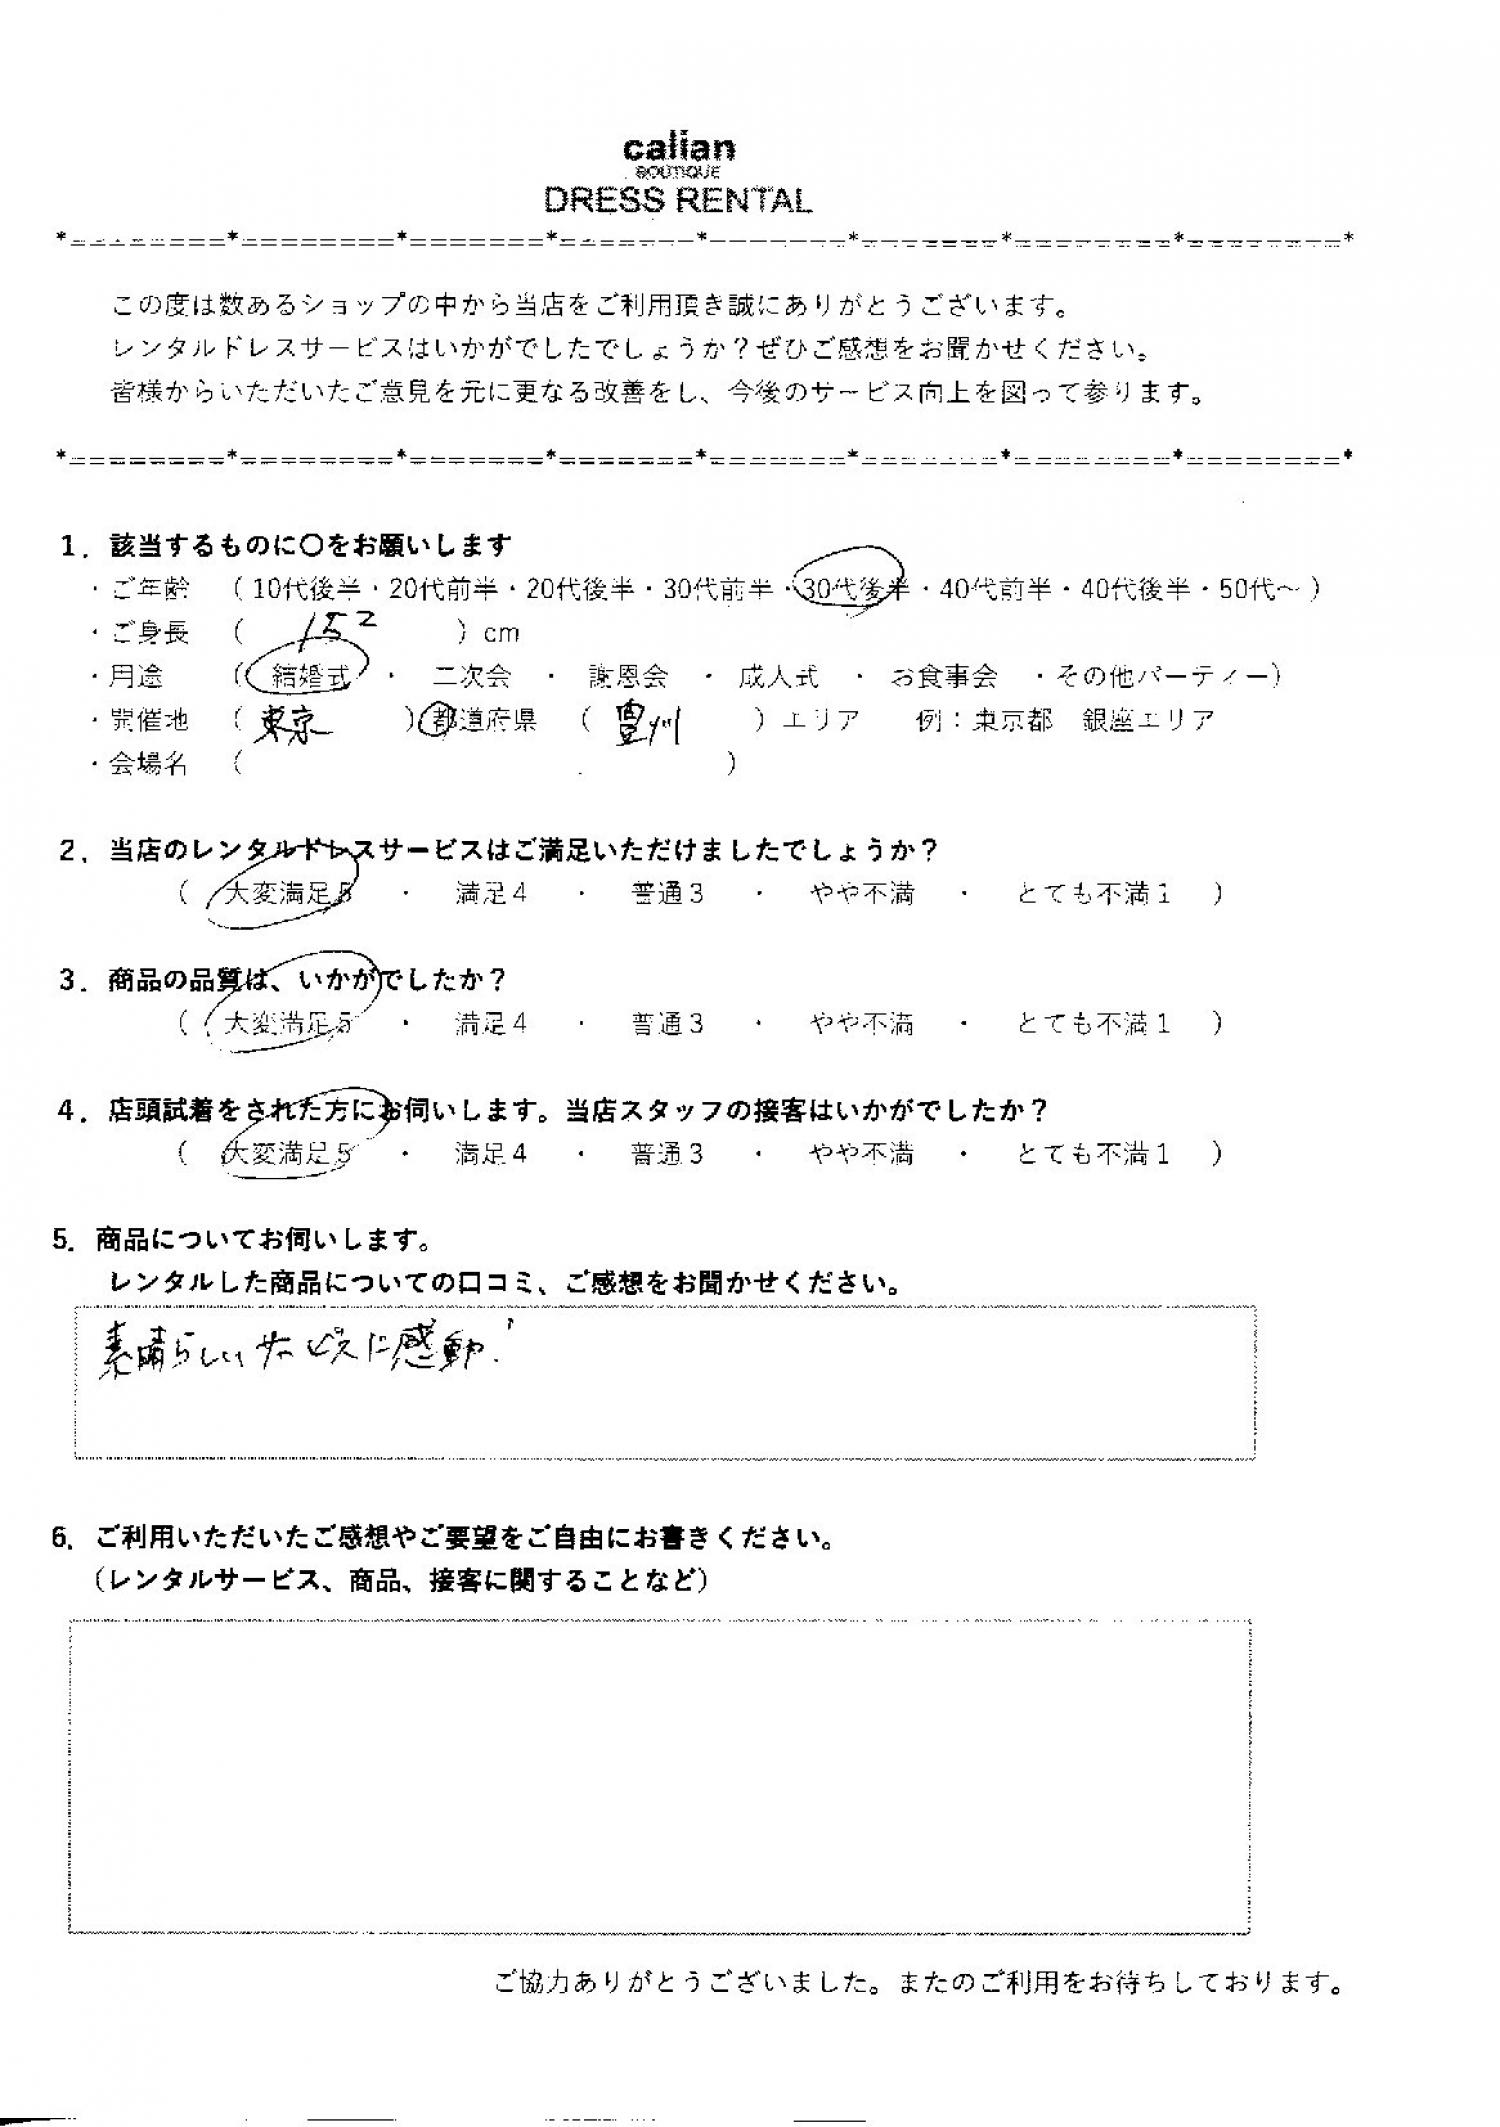 calian
BOUTIQUE
DRESS RENTAL
*========*========*=======*=======*=======*=======*========*========*
この度は数あるショップの中から当店をご利用頂き誠にありがとうございます。
レンタルドレスサービスはいかがでしたでしょうか？ぜひご感想をお聞かせください。
皆様からいただいたご意見を元に更なる改善をし、今後のサービス向上を図って参ります。
*========*========*=======*=======*=======*=======*========*========*
1．該当するものに〇をお願いします
・ご年齢 （10代後半・20代前半・20代後半・30代前半・30代後半・40代前半・40代後半・50代～）
・ご身長 （ 152 ）cm
・用途 （ 結婚式 ・ 二次会 ・ 謝恩会 ・ 成人式 ・ お食事会 ・その他パーティー）
・開催地 （ 東京 ）都道府県 （ 豊州 ）エリア 例：東京都 銀座エリア
・会場名 （ ）
2．当店のレンタルドレスサービスはご満足いただけましたでしょうか？
（ 大変満足5 ・ 満足4 ・ 普通3 ・ やや不満 ・ とても不満1 ）
3．商品の品質は、いかがでしたか？
（ 大変満足5 ・ 満足4 ・ 普通3 ・ やや不満 ・ とても不満1 ）
4．店頭試着をされた方にお伺いします。当店スタッフの接客はいかがでしたか？
（ 大変満足5 ・ 満足4 ・ 普通3 ・ やや不満 ・ とても不満1 ）
5．商品についてお伺いします。
レンタルした商品についての口コミ、ご感想をお聞かせください。
素晴らしいサービスに感動！
6．ご利用いただいたご感想やご要望をご自由にお書きください。
（レンタルサービス、商品、接客に関することなど）
ご協力ありがとうございました。またのご利用をお待ちしております。